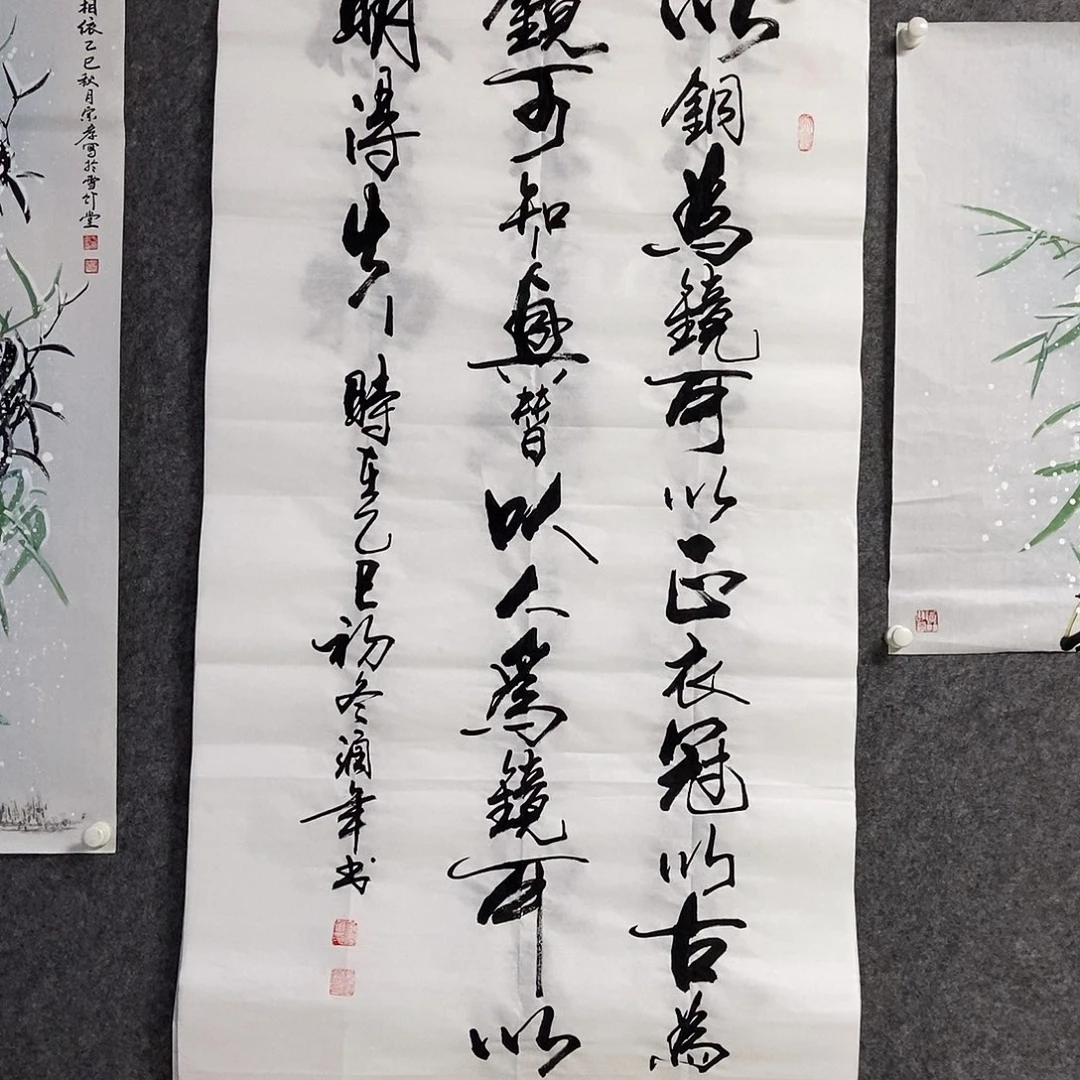 以銅為鏡可以正衣冠以古為
鏡可知興替以人為鏡可以
明得失時在乙巳初冬潤年书
相依乙巳秋月宗彦寫於雪竹堂